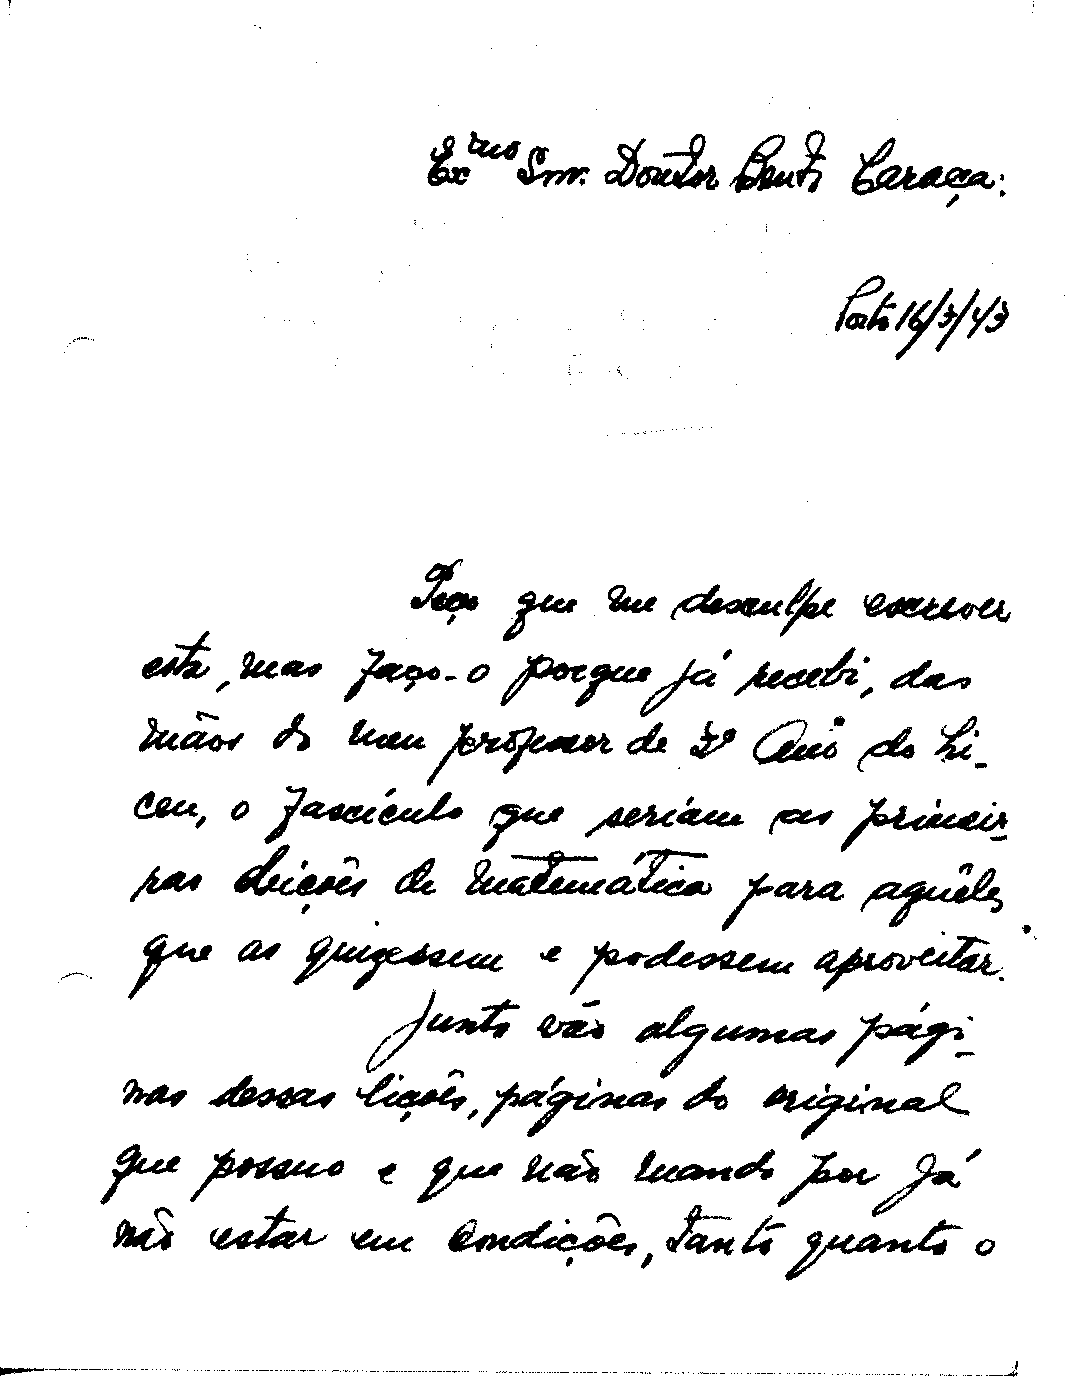 Exmo Snr. Doutor Bento Caraça:
Porto 16/3/43
Peço que me desculpe escrever
esta, mas faço-o porque já recebi, das
mãos do meu professor de 3º Ano do Li-
ceu, o fascículo que seriam as primei-
ras Leições de Matemática para aquêles
que as quizessem e podessem aproveitar.
Junto vão algumas pági-
nas dessas lições, páginas do original
que possuo e que não mando por já
não estar em condições, tanto quanto o